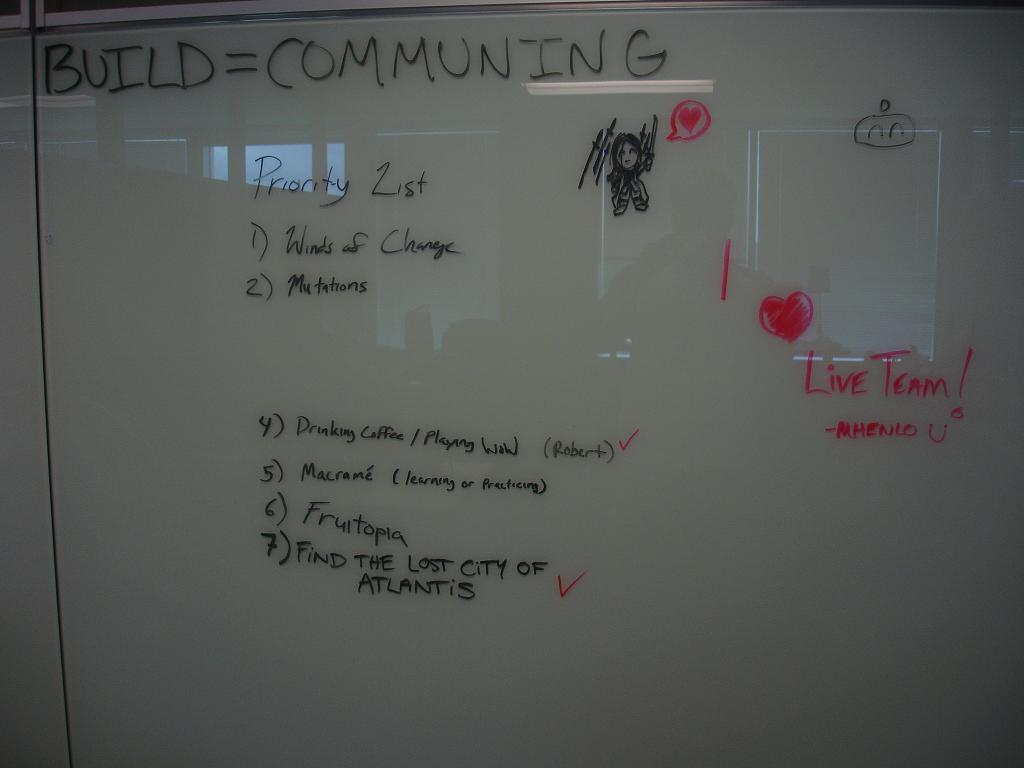 BUILD = COMMUNING
Priority List
1) Winds of Change
2) Mutations
4) Drinking Coffee / Playing WoW (Robert) ✓
5) Macramé (learning or Practicing)
6) Fruitopia
7) FIND THE LOST CITY OF
ATLANTIS ✓
I
LIVE TEAM!
-MHENLO